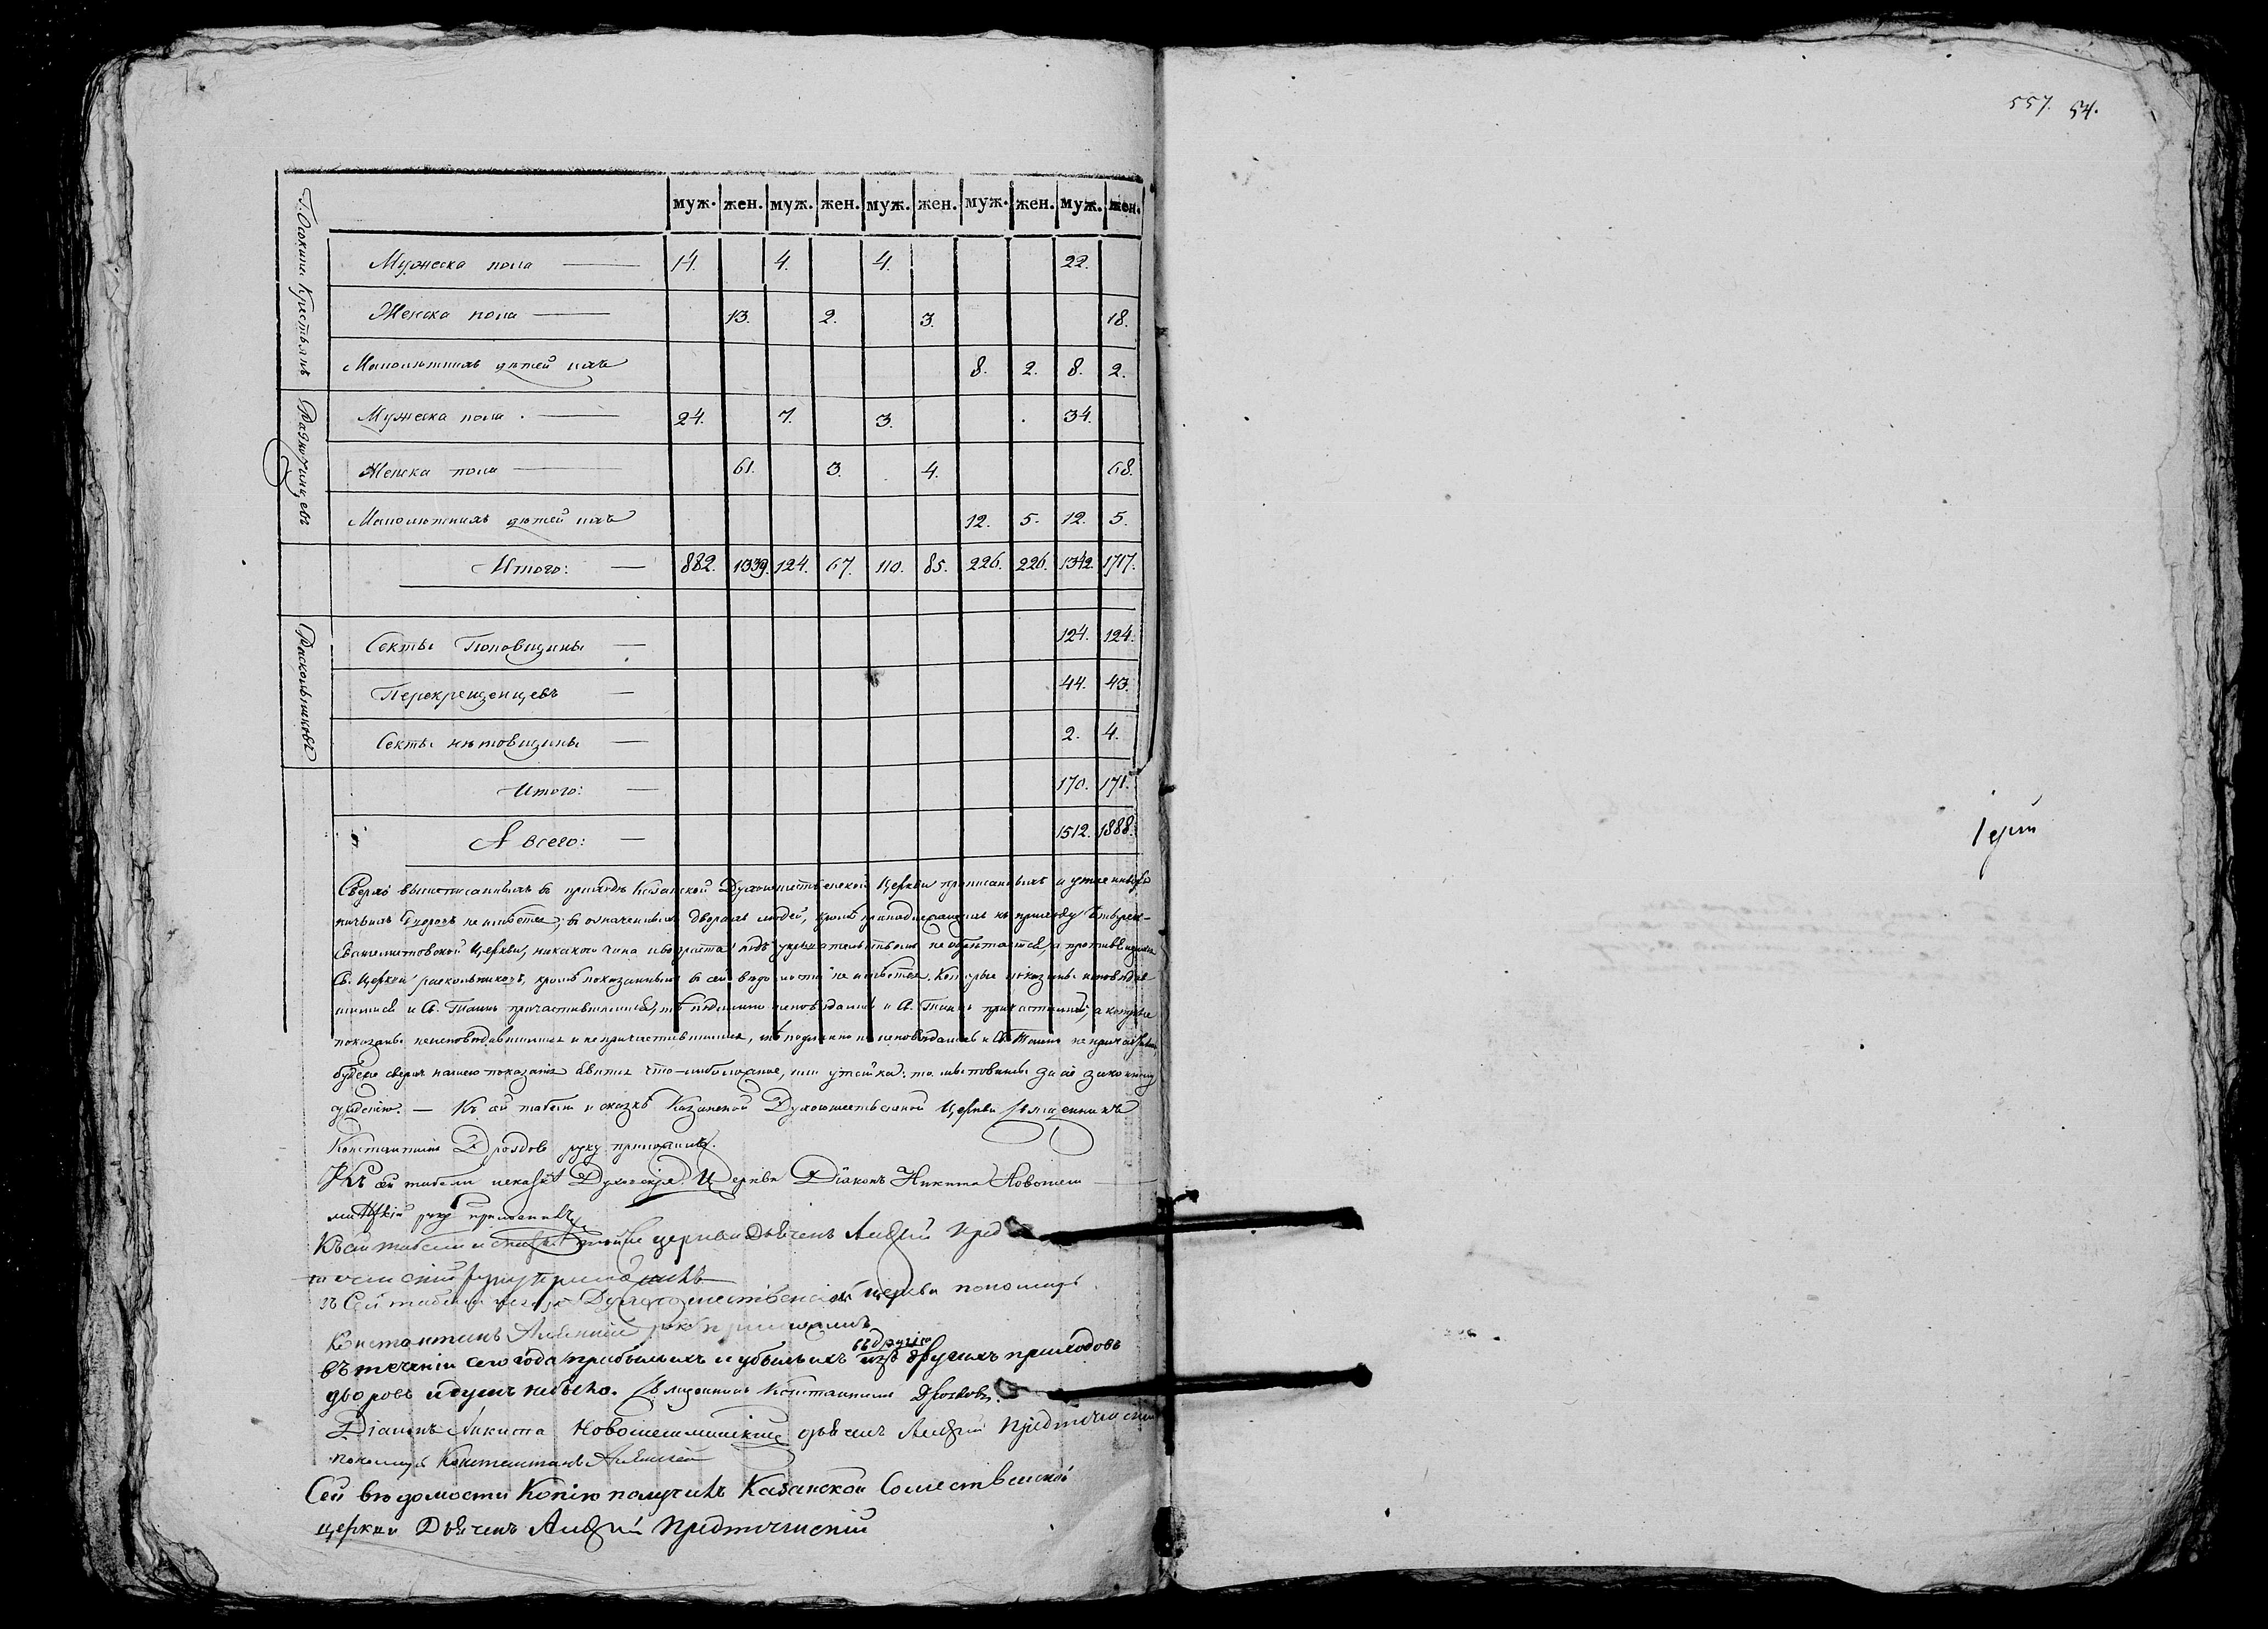 557. 54.
муж. жен. муж. жен. муж. жен. муж. жен. муж. жен.
Г. Осокина Крестьянъ
Мужеска пола — 14. 4. 4. 22.
Женска пола — 13. 2. 3. 18.
Малолѣтнихъ дѣтей ихъ 8. 2. 8. 2.
Разночинцевъ
Мужеска пола . — 24. 7. 3. 34.
Женска пола — 61. 3. 4. 68.
Малолѣтнихъ дѣтей ихъ 12. 5. 12. 5.
Итого: — 882. 1339. 124. 67. 110. 85. 226. 226. 1342. 1717.
Раскольниковъ
Секты Поповщины — 124. 124.
Перекрещенцевъ — 44. 43.
Секты нѣтовщины — 2. 4.
Итого: — 170. 171.
А всего: — 1512. 1888.
Сверхъ вышеписанныхъ въ приходѣ Казанской Духосошественской Церкви
не имѣется; въ означенныхъ дворахъ людей, кромѣ принадлежащихъ къ приходу
Церкви, никакого чина и возраста
Св. Церкви раскольниковъ, кромѣ показанныхъ въ сей вѣдомости не имѣется. Которые показаны исповѣдав-
шимися и Св. Таинъ причастившимися, тѣ подлинно исповѣданы и Св. Таинъ причастились; а которые
показаны неисповѣдавшимися и не причастившимися, тѣ подлинно не исповѣдались и Св. Таинъ не
будеже сверхъ нашего показанія явится что-либо ложное, или утайка: то мы повинны за то законному
сужденію. — Къ сей табели и сказкѣ Казанской Духосошественской Церкви Священникъ
Константинъ Дроздовъ руку приложилъ.
Къ сей табели Церкви Діаконъ Никита Новошеш-
минскій руку приложилъ
Къ сей табели и церкви Дьячекъ Алексѣй Пред-
теченскій руку приложилъ
къ сей табели Духосошественской церкви пономарь
Константинъ руку приложилъ
въ теченіи сего года прибылыхъ и убылыхъ изъ другихъ приходовъ
дворовъ и душъ не было. Священникъ Константинъ Дроздовъ.
Діаконъ Никита Новошешминскій дьячекъ Алексѣй Предтеченскій
пономарь Константинъ
Сей вѣдомости Копію получилъ Казанской Сошественской
церкви Дьячекъ Алексѣй Предтеченскій